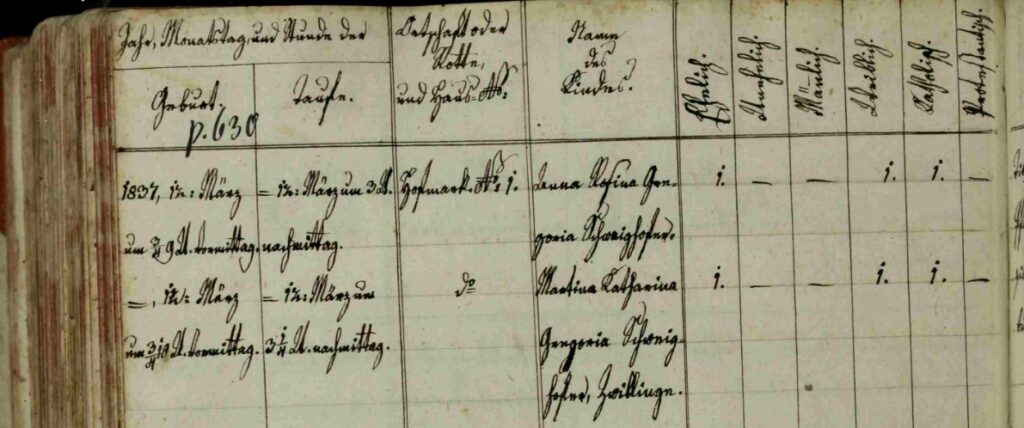 Jahr, Monatstag, und Stunde der
Geburt.
p. 630
Taufe.
Ortschaft oder
Rotte,
und Haus-No:
Name
des
Kindes.
Ehelich.
Unehelich.
Mänlich.
Weiblich.
Katholisch.
Protestantisch.
1837, 12: März = 12: März um 3 U. Hofmark. No: 1. Anna Rosina Gre- 1. — — 1. 1. —
um 9 U. vormittag. nachmittag. goria Schweighofer.
=, 12: März = 12: März um do Martina Katharina 1. — — 1. 1. —
um U. vormittag. 3 1/4 U. nachmittag. Gregoria Schweig-
hofer, Zwillinge.